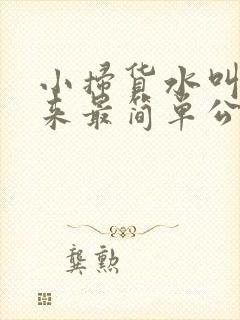 小掃货水叫
来最简单公
龚勲